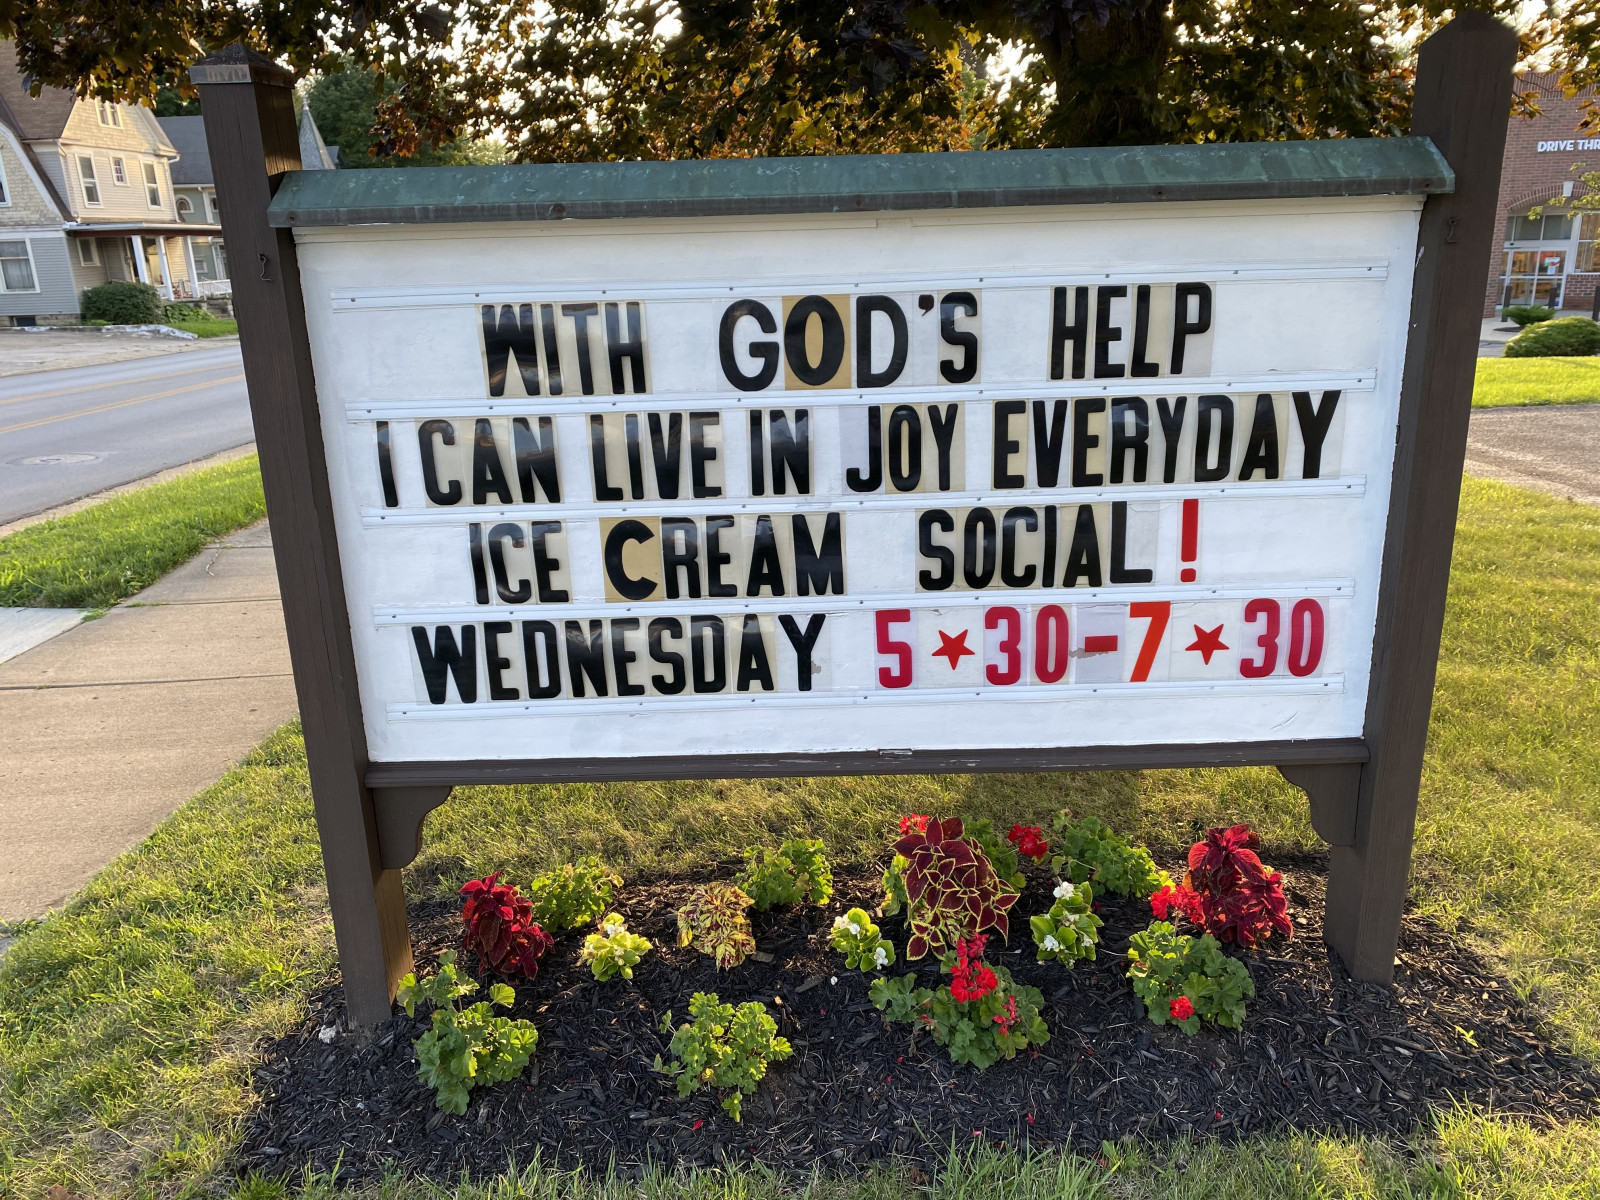 WITH GOD'S HELP
I CAN LIVE IN JOY EVERYDAY
ICE CREAM SOCIAL!
WEDNESDAY 5★30-7★30
DRIVE